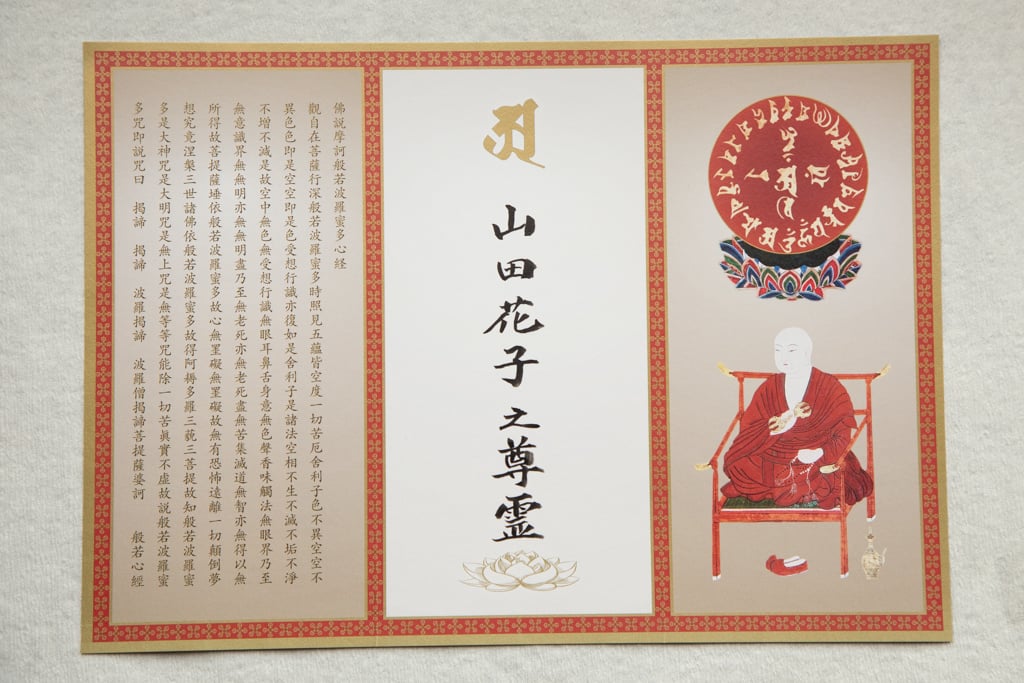 山田花子之尊霊
佛説摩訶般若波羅蜜多心経
觀自在菩薩行深般若波羅蜜多時照見五蘊皆空度一切苦厄舍利子色不異空空不
異色色即是空空即是色受想行識亦復如是舍利子是諸法空相不生不滅不垢不淨
不増不減是故空中無色無受想行識無眼耳鼻舌身意無色聲香味觸法無眼界乃至
無意識界無無明亦無無明盡乃至無老死亦無老死盡無苦集滅道無智亦無得以無
所得故菩提薩埵依般若波羅蜜多故心無罣礙無罣礙故無有恐怖遠離一切顛倒夢
想究竟涅槃三世諸佛依般若波羅蜜多故得阿耨多羅三藐三菩提故知般若波羅蜜
多是大神咒是大明咒是無上咒是無等等咒能除一切苦眞實不虚故説般若波羅蜜
多咒即説咒曰　揭諦　揭諦　波羅揭諦　波羅僧揭諦菩提薩婆訶　般若心經